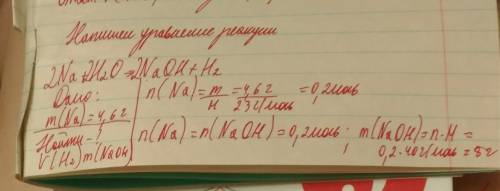 Напишем уравнение реакции
2Na+2H₂O=2NaOH+H₂
Дано:
m(Na)=4,6г
Найти-?
V(H₂) m(NaOH)
n(Na)=m/М=4,6г/23г/моль=0,2моль
n(Na)=n(NaOH)=0,2моль; m(NaOH)=n·М=
0,2·40г/моль=8г